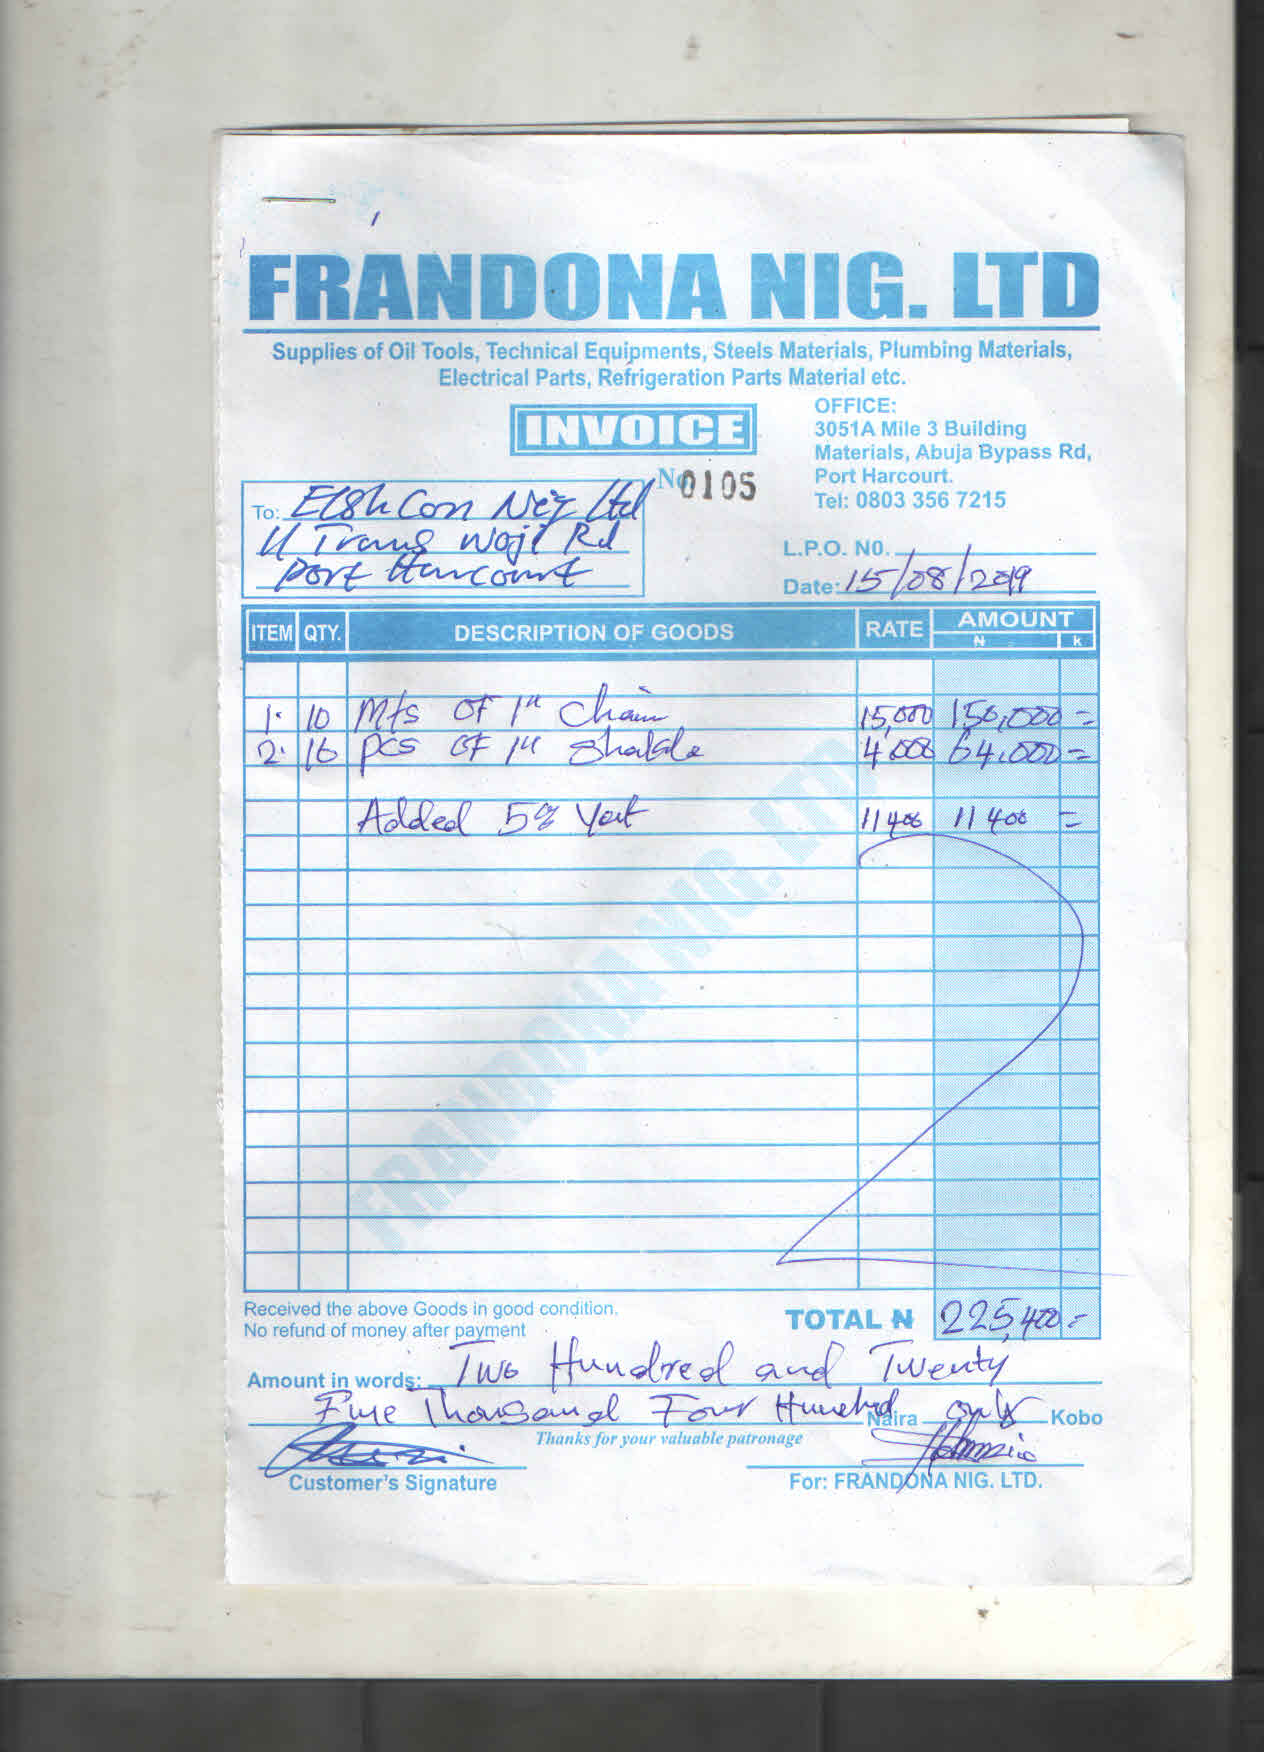 FRANDONA NIG. LTD
Supplies of Oil Tools, Technical Equipments, Steels Materials, Plumbing Materials,
Electrical Parts, Refrigeration Parts Material etc.
INVOICE
OFFICE:
3051A Mile 3 Building
Materials, Abuja Bypass Rd,
Port Harcourt.
Tel: 0803 356 7215
No 0105
To: Nig Ltd
11 Trans Woji Rd
Port Harcourt
L.P.O. N0.
Date: 15/08/2019
ITEM QTY. DESCRIPTION OF GOODS RATE AMOUNT
N k
1. 10 Mts OF 1" Chain 15,000 150,000 =
2. 16 Pcs OF 1" Shakle 4,000 64,000 =
Added 5% Vat 11400 11400 =
FRANDONA NIG. LTD
Received the above Goods in good condition.
No refund of money after payment
TOTAL N 225,400 =
Amount in words: Two Hundred and Twenty
Five Thousand Four Hundred Naira only Kobo
Thanks for your valuable patronage
Customer's Signature
For: FRANDONA NIG. LTD.